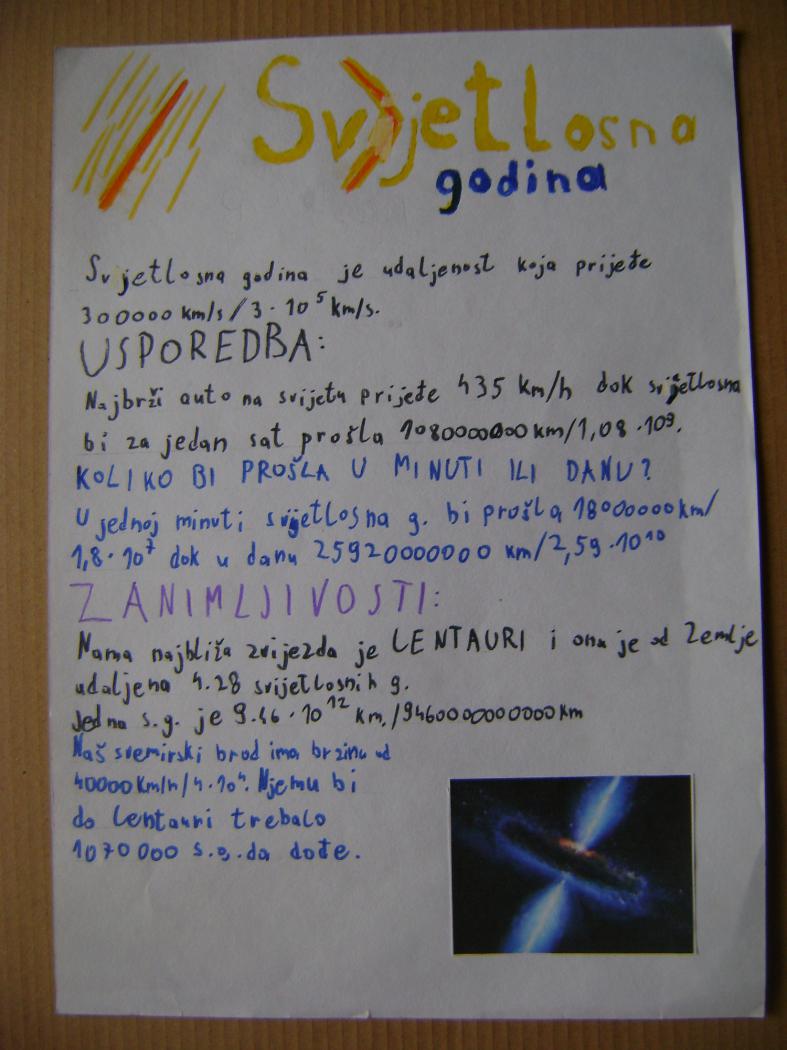 Svjetlosna
godina
Svjetlosna godina je udaljenost koja prijeđe
300000 km/s/3·10⁵ km/s.
USPOREDBA:
Najbrži auto na svijetu prijeđe 435 km/h dok svjetlosna
bi za jedan sat prošla 1080000000km/1,08·10⁹.
KOLIKO BI PROŠLA U MINUTI ILI DANU?
U jednoj minuti svjetlosna g. bi prošla 18000000km/
1,8·10⁷ dok u danu 25920000000 km/2,59·10¹⁰
ZANIMLJIVOSTI:
Nama najbliža zvijezda je CENTAURI i ona je od Zemlje
udaljena 4.28 svijetlosnih g.
Jedna s.g. je 9.46·10¹² km./9460000000000km
Naš svemirski brod ima brzinu od
40000Km/h/4·10⁴. Njemu bi
do Centauri trebalo
1070000 s.g. da dođe.